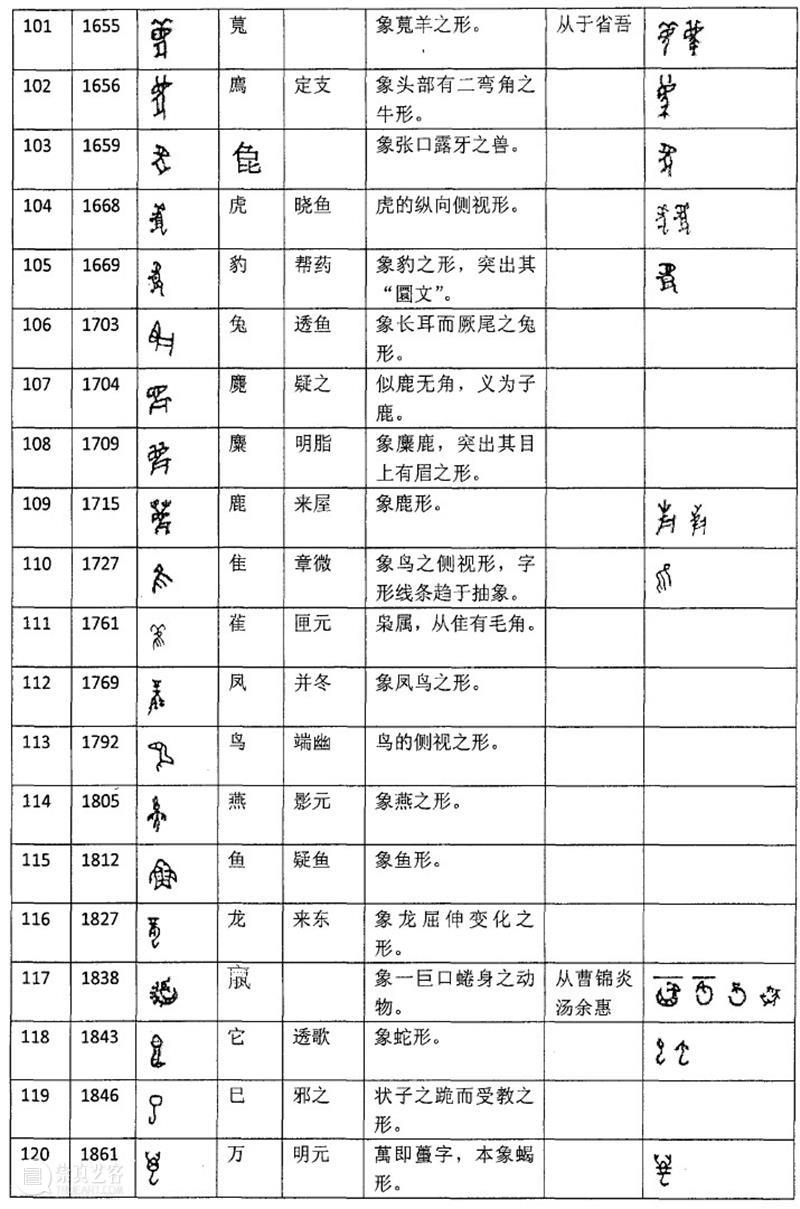 101 1655 莧 象莧羊之形。 从于省吾
102 1656 廌 定支 象头部有二弯角之
牛形。
103 1659 象张口露牙之兽。
104 1668 虎 晓鱼 虎的纵向侧视形。
105 1669 豹 帮药 象豹之形，突出其
“圜文”。
106 1703 兔 透鱼 象长耳而厥尾之兔
形。
107 1704 麑 疑之 似鹿无角，义为子
鹿。
108 1709 麋 明脂 象麋鹿，突出其目
上有眉之形。
109 1715 鹿 来屋 象鹿形。
110 1727 隹 章微 象鸟之侧视形，字
形线条趋于抽象。
111 1761 雈 匣元 枭属，从隹有毛角。
112 1769 凤 并冬 象凤鸟之形。
113 1792 鸟 端幽 鸟的侧视之形。
114 1805 燕 影元 象燕之形。
115 1812 鱼 疑鱼 象鱼形。
116 1827 龙 来东 象龙屈伸变化之
形。
117 1838 象一巨口蜷身之动 从曹锦炎
物。 汤余惠
118 1843 它 透歌 象蛇形。
119 1846 巳 邪之 状子之跪而受教之
形。
120 1861 万 明元 萬即蠆字，本象蝎
形。
崇真艺客